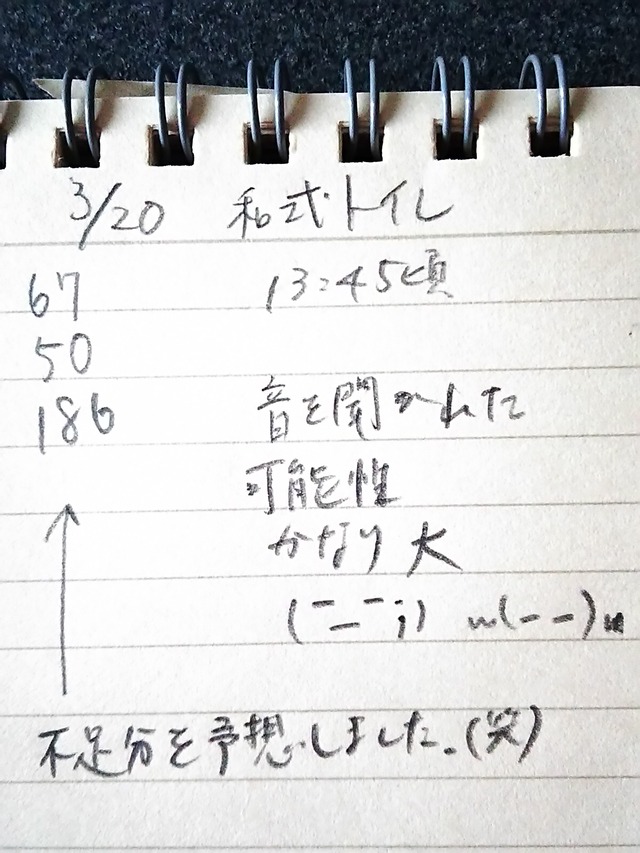 3/20 和式トイレ
67 13:45頃
50
186 音を聞かれた
可能性
かなり大
(￣ー￣;) m(--)m
↑
不足分を予想しました。(笑)